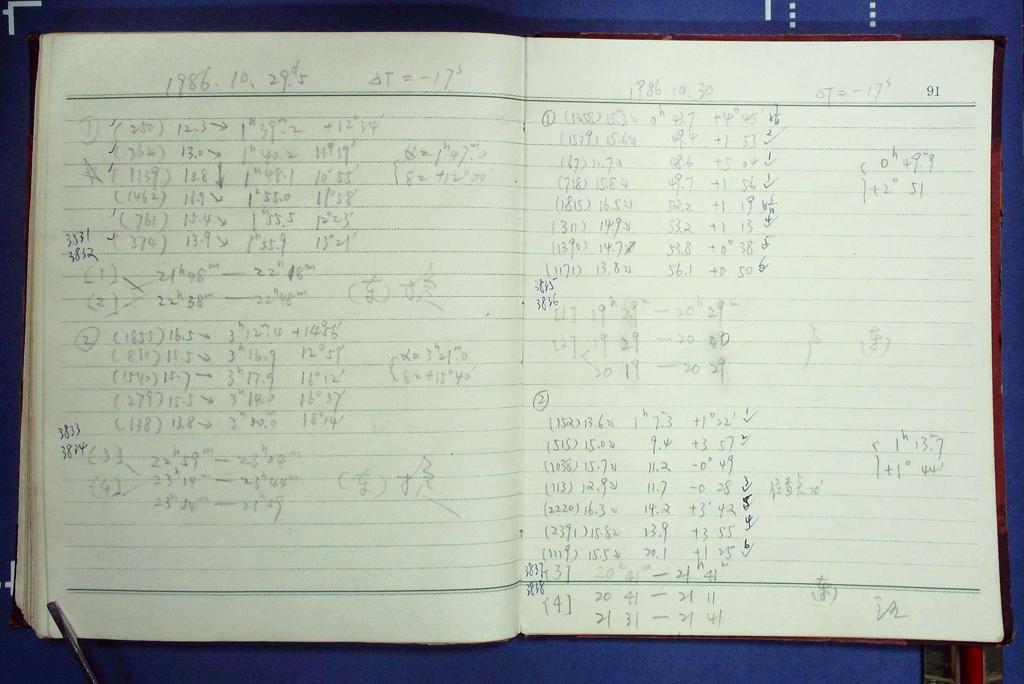 1986.10.29.ᵈ5 ΔT = -17ˢ
① (250) 12.3 1ʰ39ᵐ.2 +12°34'
(362) 13.0 1ʰ40.2 11°19'
(1139) 13.8 1ʰ48.1 10°55'
(1462) 16.9 1ʰ55.0 11°58'
(761) 15.4 1ʰ55.5 12°23'
(374) 13.9 1ʰ55.9 13°21'
α=1ʰ47ᵐ.0
δ=+12°00'
3831
3832
[1] 21ʰ48ᵐ — 22ʰ18ᵐ
[2] 22ʰ38ᵐ — 22ʰ48ᵐ
(东)
② (1855) 16.5 3ʰ12ᵐ.4 +14°56'
(810) 15.5 3ʰ16.9 12°59'
(1540) 15.7 3ʰ17.9 16°12'
(279) 15.5 3ʰ14.0 16°37'
(138) 13.8 3ʰ30.0 18°14'
α=3ʰ21ᵐ.0
δ=+15°40'
3833
3834
[3] 22ʰ59ᵐ — 23ʰ04ᵐ
[4] 23ʰ14ᵐ — 23ʰ44ᵐ
23ʰ54ᵐ — 23ʰ59
(东)
1986.10.30 ΔT = -17ˢ 91
① (1358) 15.3 0ʰ 43.7 +4° 45'
(1579) 15.6 49.4 +1 53 2
(67) 11.7 48.6 +5 04 1
(718) 15.8 49.7 +1 56 3
(1815) 16.5 52.2 +1 19
(311) 14.9 53.2 +1 13 4
(1390) 14.7 53.8 +0° 38 5
(1171) 13.8 56.1 +0 50 6
0ʰ 49ᵐ.9
+2° 51
3835
3836
[1] 19ʰ 29ᵐ — 20ʰ 29ᵐ
[2] 19 29 — 20 20
20 19 — 20 29
(东)
②
(152) 13.6 1ʰ 7.3 +1° 22' 1
(515) 15.0 9.4 +3 57 2
(1038) 15.7 11.2 -0° 49
(113) 12.9 11.7 -0 28 3
(2220) 16.3 14.2 +3° 42
(2391) 15.8 13.9 +3 55 4
(1119) 15.5 20.1 +1 25 6
1ʰ 13ᵐ.7
+1° 44'
3837
3838
[3] 20ʰ 41ᵐ — 21ʰ 41ᵐ
[4] 20 41 — 21 11
21 31 — 21 41
(东)